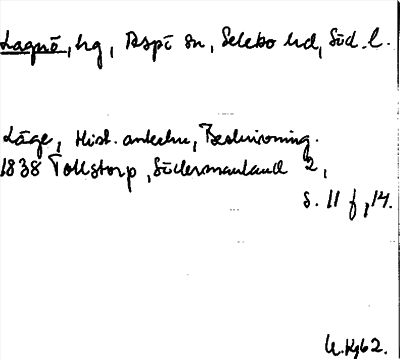 Lagnö, hg, Aspö sn, Selebo hd, Söd. l.
Läge, Hist. anteckn, Beskrivning.
1838 Tollstorp, Södermanland 2,
s. 11 f, 14.